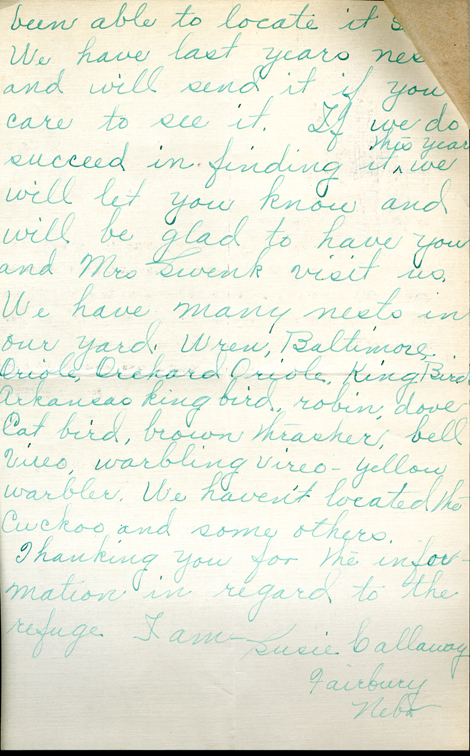 been able to locate it
We have last years nes
and will send it if you
care to see it. If we do
this year
succeed in finding it ^ we
will let you know and
will be glad to have you
and Mrs Swenk visit us.
We have many nests in
our yard. Wren, Baltimore
Oriole, Orchard Oriole, King Bird
Arkansas king bird, robin, dove
Cat bird, brown thrasher, bell
Vireo, warbling vireo - yellow
warbler. We haven't located the
Cuckoo and some others.
Thanking you for the infor-
mation in regard to the
refuge I am -
Susie Callaway
Fairbury
Nebr